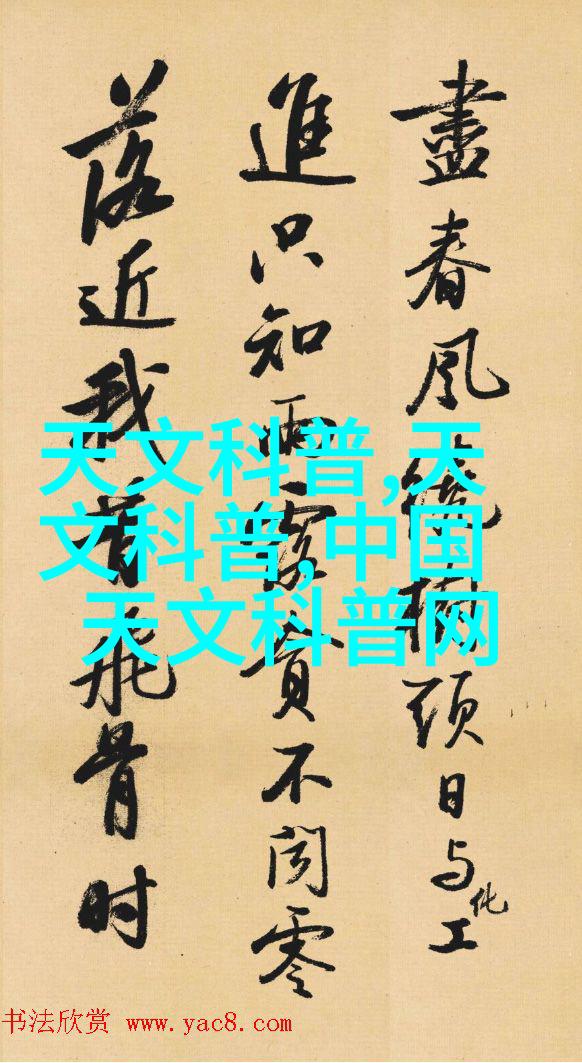 盡春風繞樹頭日与化工
進只知雨露貪不聞零
落近我昔飛骨时
天文科普,天
文科普,中国
天文科普网
书法欣赏 www.yac8.com